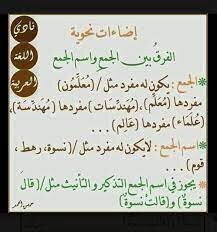 نادي
اللغة
العربية
إضاءات نحوية
الفرق بين الجمع واسم الجمع
الجمع : يكون له مفرد مثل / (معلمون)
مفردها (معلم)، (مهندسات) مفردها (مهندسة)،
(علماء) مفردها (عالم) ...
اسم الجمع : لا يكون له مفرد مثل / (نسوة، رهط ،
قوم) ...
يجوز في اسم الجمع التذكير و التأنيث مثل / (قال
نسوة) و (قالت نسوة)